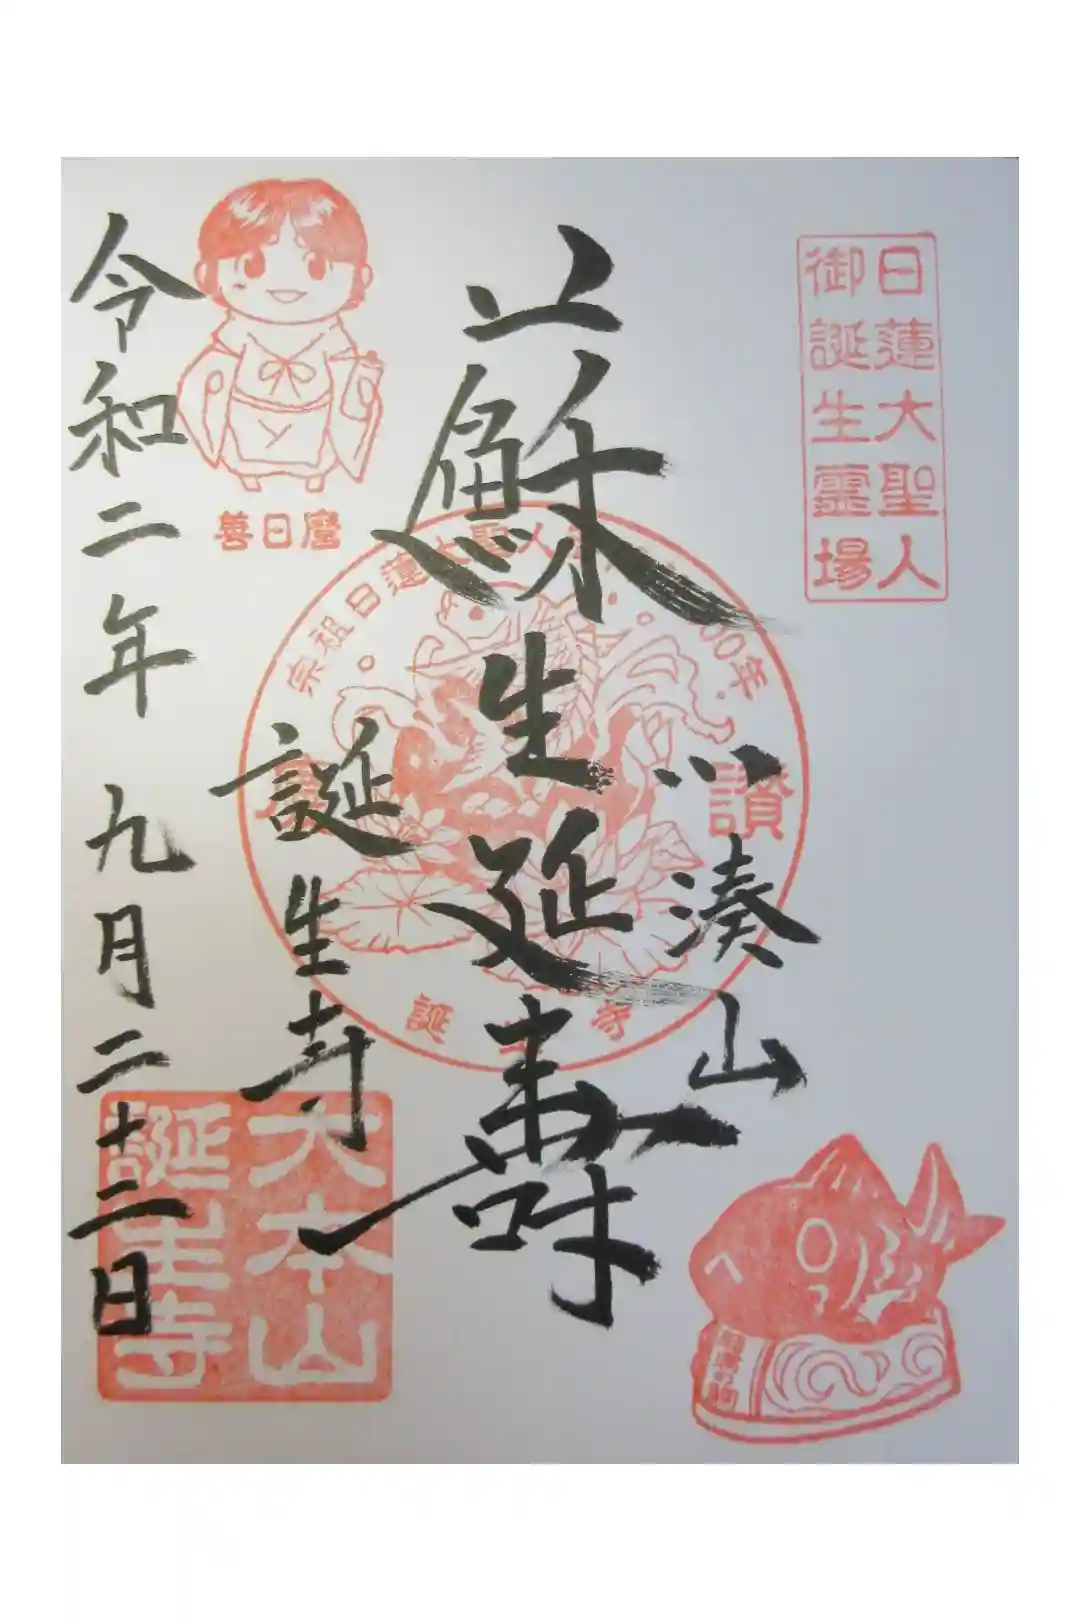 日蓮大聖人
御誕生霊場
小湊山
蘇生延壽
宗祖日蓮大聖人
00年
讃
誕生寺
誕生寺
善日麿
令和二年九月二十二日
大本山
誕生寺